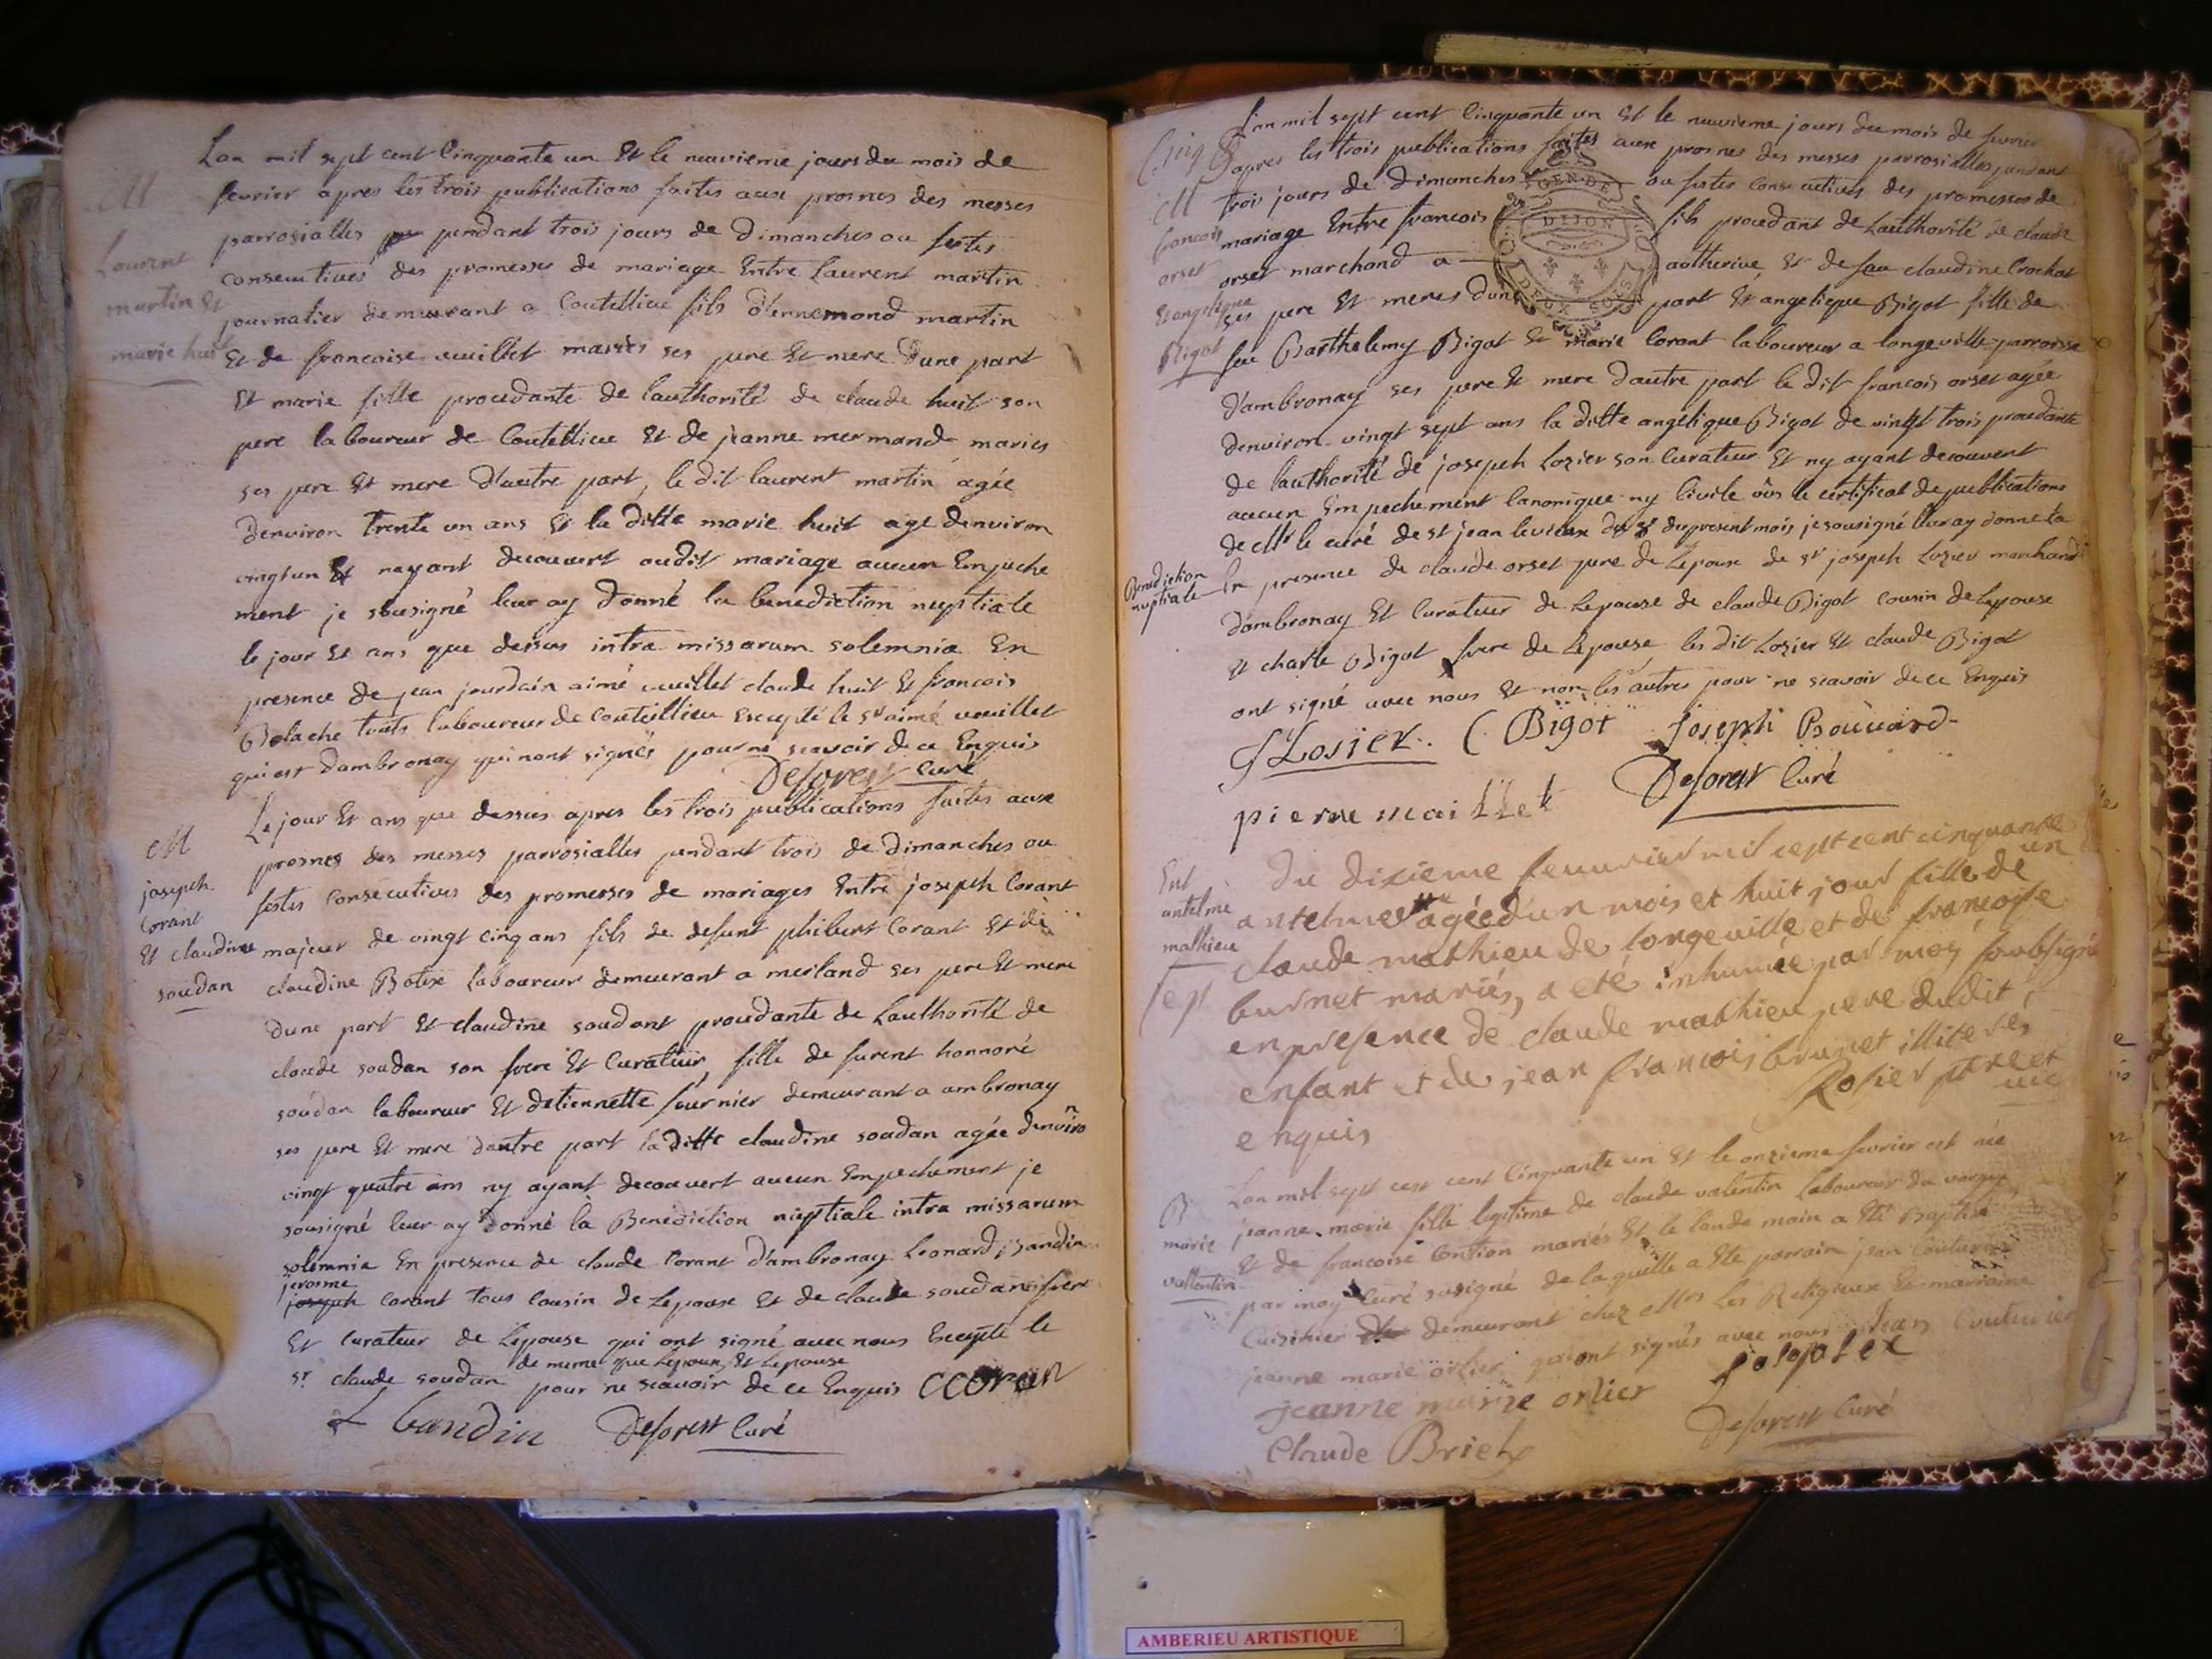 Lan mil sept cent Cinquante un Et le neuvieme jours du mois de
fevrier apres les trois publications faites aux prosnes des messes
parrosialles pendant trois jours de Dimanches ou festes
consecutives des promesses de mariage Entre laurent martin
journalier demeurant a Coutellieu fils d'ennemond martin
Et de francoise vuillet mariés ses pere Et mere Dune part
Et marie fille procedante de lauthorité de claude huit son
pere laboureur de Coutellieu Et de jeanne mermand maries
ses pere Et mere d'autre part, le dit laurent martin agée
denviron trente un ans Et la ditte marie huit age denviron
vingt un Et nayant decouvert audit mariage aucun Empeche
ment je sousigné leur ay donné la benediction nuptiale
le jour Et ans que dessus intra missarum solemnia En
presence de jean jourdain aimé vuillet claude huit Et francois
Bolache touts laboureur de Coutellieu Excepté le sr aimé vuillet
qui est dambronay qui nont signés pour ne scavoir de ce Enquis
Deforest Curé
M
Laurent
martin Et
marie huit
Le jour Et ans que dessus apres les trois publications faites aux
prosnes des messes parrosialles pendant trois de Dimanches ou
festes Consecutives des promesses de mariages Entre joseph Corant
majeur de vingt cinq ans fils de defunt philibert Corant Et de
claudine Botex laboureur demeurant a merland ses pere Et mere
dune part Et claudine soudant procedante de Lauthorité de
claude soudan son frere Et Curateur, fille de furent honnoré
soudan laboureur Et detiennette fournier demeurant a ambronay
ses pere Et mere dautre part la ditte claudine soudan agée denviron
vingt quatre ans ny ayant decouvert aucun Empechement je
sousigné leur ay donné la Benediction nuptiale intra missarum
solemnia En presence de claude Corant d'ambronay Leonard Bandin
jerosme
joseph Corant tous Cousin de Lepouse Et de claude soudan frere
Et Curateur de Lepouse qui ont signé avec nous Excepté le
de meme que Lepoux Et Lepouse
sr claude soudan pour ne scavoir de ce Enquis CCoran
L bandin Deforest Curé
M
joseph
Corant
Et claudine
soudan
Lan mil sept cent Cinquante un Et le neuvieme jours du mois de fevrier
apres les trois publications faites aux prosnes des messes parrosialles pendant
trois jours de Dimanches ou festes consecutives des promesses de
mariage Entre francois fils procedant de Lauthorité de claude
orset marchand a autherive, Et de feu claudine Crochat
ses pere Et meres dune part Et angelique Bigot fille de
feu Barthelemy Bigot Et marie Corant laboureur a longeville parroisse
d'ambronay ses pere Et mere dautre part le dit francois orset agée
denviron vingt sept ans la ditte angelique Bigot de vingt trois procedante
de lauthorité de joseph Lozier son Curateur Et ny ayant decouvert
aucun Empechement Canonique ny Civile vûs le certificat de publications
de Mr le curé de st jean levieux du 8 du present mois je sousigné leur ay donne la
Benediction
nuptiale
En presence de claude orset pere de Lepoux de sr joseph Lozier marchand
dambronay Et Curateur de Lepouse de claude Bigot cousin de Lepouse
Et charle Bigot frere de Lepouse les dit Lozier Et claude Bigot
ont signé avec nous Et non les autres pour ne scavoir de ce Enquis
J Losier C Bigot Joseph Bouvard
pierre maillet Deforest Curé
Cinq
M
francois
orset
Et angelique
Bigot
GEN. DE
DIJON
DEUX SOLS
Du dixieme feuvrier mil sept cent cinquante
un
antelme agée d'un mois et huit jour fille de
claude mathieu de longeville et de francoise
burnet mariés, a eté inhumée par moy soubsigné
en presence de claude mathieu pere dudit
enfant et de jean francois brunet illiteres
enquis Rosier ptre et
vic
Ent
antelme
mathieu
sept
Lan mil sept cent Cinquante un Et le onzieme fevrier est née
jeanne marie fille legitime de claude valentin laboureur du
Et de francoise Contion mariés Et le lande main a Eté Baptisé
par moy Curé sousigné de laquelle a Ete parrain jean Couturier
Cuisinier demeurant chez Mrs les Religieux Et marraine
jeanne marie orlier qui ont signés avec nous Jean Couturier
jeanne marie orlier
Claude Briel Deforest Curé
B
marie
vallentin
AMBERIEU ARTISTIQUE